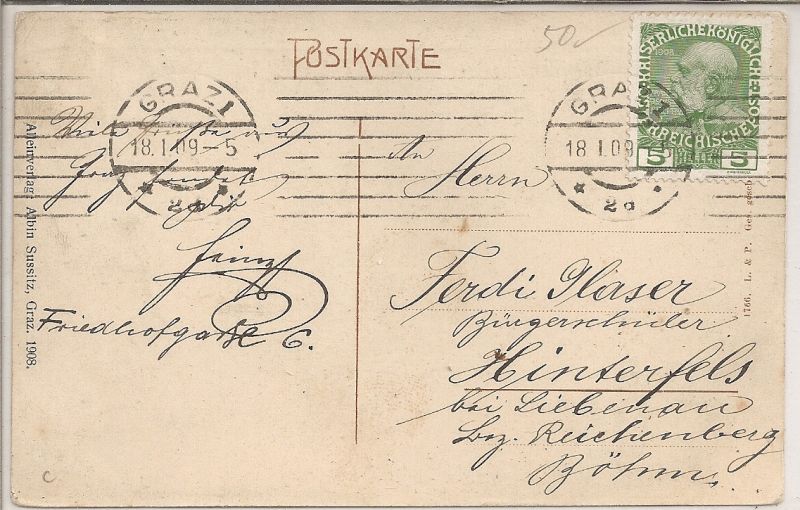 POSTKARTE
50
GRAZ 1
18.I.09-5
2d
GRAZ 1
18.I.09
2d
KAISERLICHE KÖNIGLICHE ÖSTERREICHISCHE POST
1908
5 HELLER 5
Viele Grüße aus
Graz sendet
Heinz
Friedhofgasse 6.
An Herrn
Ferdi Glaser
Bürgerschüler
Hinterfels
bei Liebenau
Bez. Reichenberg
Böhm.
Alleinverlag Albin Sussitz, Graz. 1908.
1766. L. & P. Ges. gesch.
C